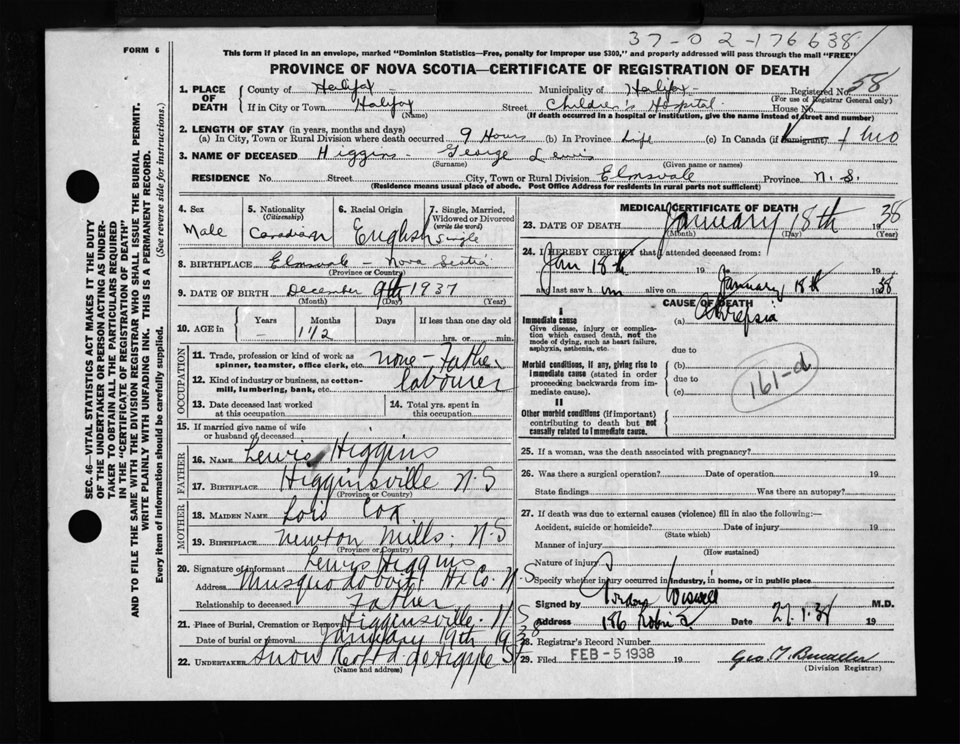 37-02-176638
FORM 6
This form if placed in an envelope, marked "Dominion Statistics—Free, penalty for improper use $300," and properly addressed will pass through the mail "FREE"
PROVINCE OF NOVA SCOTIA—CERTIFICATE OF REGISTRATION OF DEATH
SEC. 46—VITAL STATISTICS ACT MAKES IT THE DUTY
OF THE UNDERTAKER OR PERSON ACTING AS UNDER-
TAKER TO OBTAIN ALL THE PARTICULARS REQUIRED
IN THE "CERTIFICATE OF REGISTRATION OF DEATH"
AND TO FILE THE SAME WITH THE DIVISION REGISTRAR WHO SHALL ISSUE THE BURIAL PERMIT.
WRITE PLAINLY WITH UNFADING INK. THIS IS A PERMANENT RECORD.
Every item of information should be carefully supplied. (See reverse side for instructions.)
1. PLACE OF DEATH
County of Halifax Municipality of Halifax Registered No. 58
(For use of Registrar General only)
If in City or Town Halifax Street Children's Hospital House No.
(Name) (If death occurred in a hospital or institution, give the name instead of street and number)
2. LENGTH OF STAY (in years, months and days)
(a) In City, Town or Rural Division where death occurred 9 Hours (b) In Province Life (c) In Canada (if immigrant) 1 mo
3. NAME OF DECEASED Higgins George Lewis
(Surname) (Given name or names)
RESIDENCE No. Street City, Town or Rural Division Elmsvale Province N. S.
(Residence means usual place of abode. Post Office Address for residents in rural parts not sufficient)
4. Sex Male
5. Nationality (Citizenship) Canadian
6. Racial Origin English
7. Single, Married, Widowed or Divorced (write the word) Single
8. BIRTHPLACE Elmsvale - Nova Scotia
(Province or Country)
9. DATE OF BIRTH December 9th 1937
(Month) (Day) (Year)
10. AGE in Years — Months 1 1/2 Days If less than one day old hrs. or min.
OCCUPATION
11. Trade, profession or kind of work as spinner, teamster, office clerk, etc. none - Father
12. Kind of industry or business, as cotton-mill, lumbering, bank, etc. labourer
13. Date deceased last worked at this occupation
14. Total yrs. spent in this occupation
15. If married give name of wife or husband of deceased
FATHER
16. NAME Lewis Higgins
17. BIRTHPLACE Higginsville N.S
(Province or Country)
MOTHER
18. MAIDEN NAME Lois Cox
19. BIRTHPLACE Newton Mills, N.S
(Province or Country)
20. Signature of informant Lewis Higgins
Address Musquodoboit Hx Co. N.S
Relationship to deceased Father
21. Place of Burial, Cremation or Removal Higginsville N S
Date of burial or removal January 19th 1938
22. UNDERTAKER Snow
(Name and address)
MEDICAL CERTIFICATE OF DEATH
23. DATE OF DEATH January 18th 1938
(Month) (Day) (Year)
24. I HEREBY CERTIFY that I attended deceased from:
Jan 18th 19 January 18th 1938
and last saw him alive on 19
CAUSE OF DEATH
I
Immediate cause (a) Athrepsia
Give disease, injury or complica-
tion which caused death, not the
mode of dying, such as heart failure,
asphyxia, asthenia, etc.
due to
Morbid conditions, if any, giving rise to (b)
immediate cause (stated in order due to
proceeding backwards from im-
mediate cause). (c)
161-d
II
Other morbid conditions (if important)
contributing to death but not
causally related to immediate cause.
25. If a woman, was the death associated with pregnancy?
26. Was there a surgical operation? Date of operation 19
State findings Was there an autopsy?
27. If death was due to external causes (violence) fill in also the following:—
Accident, suicide or homicide? Date of injury 19
(State which)
Manner of injury
(How sustained)
Nature of injury
Specify whether injury occurred in industry, in home, or in public place
Signed by Gordon Wiswell M.D.
Address 186 Robie St. Date 27.1.38 19
28. Registrar's Record Number
29. Filed FEB - 5 1938 19
(Division Registrar)